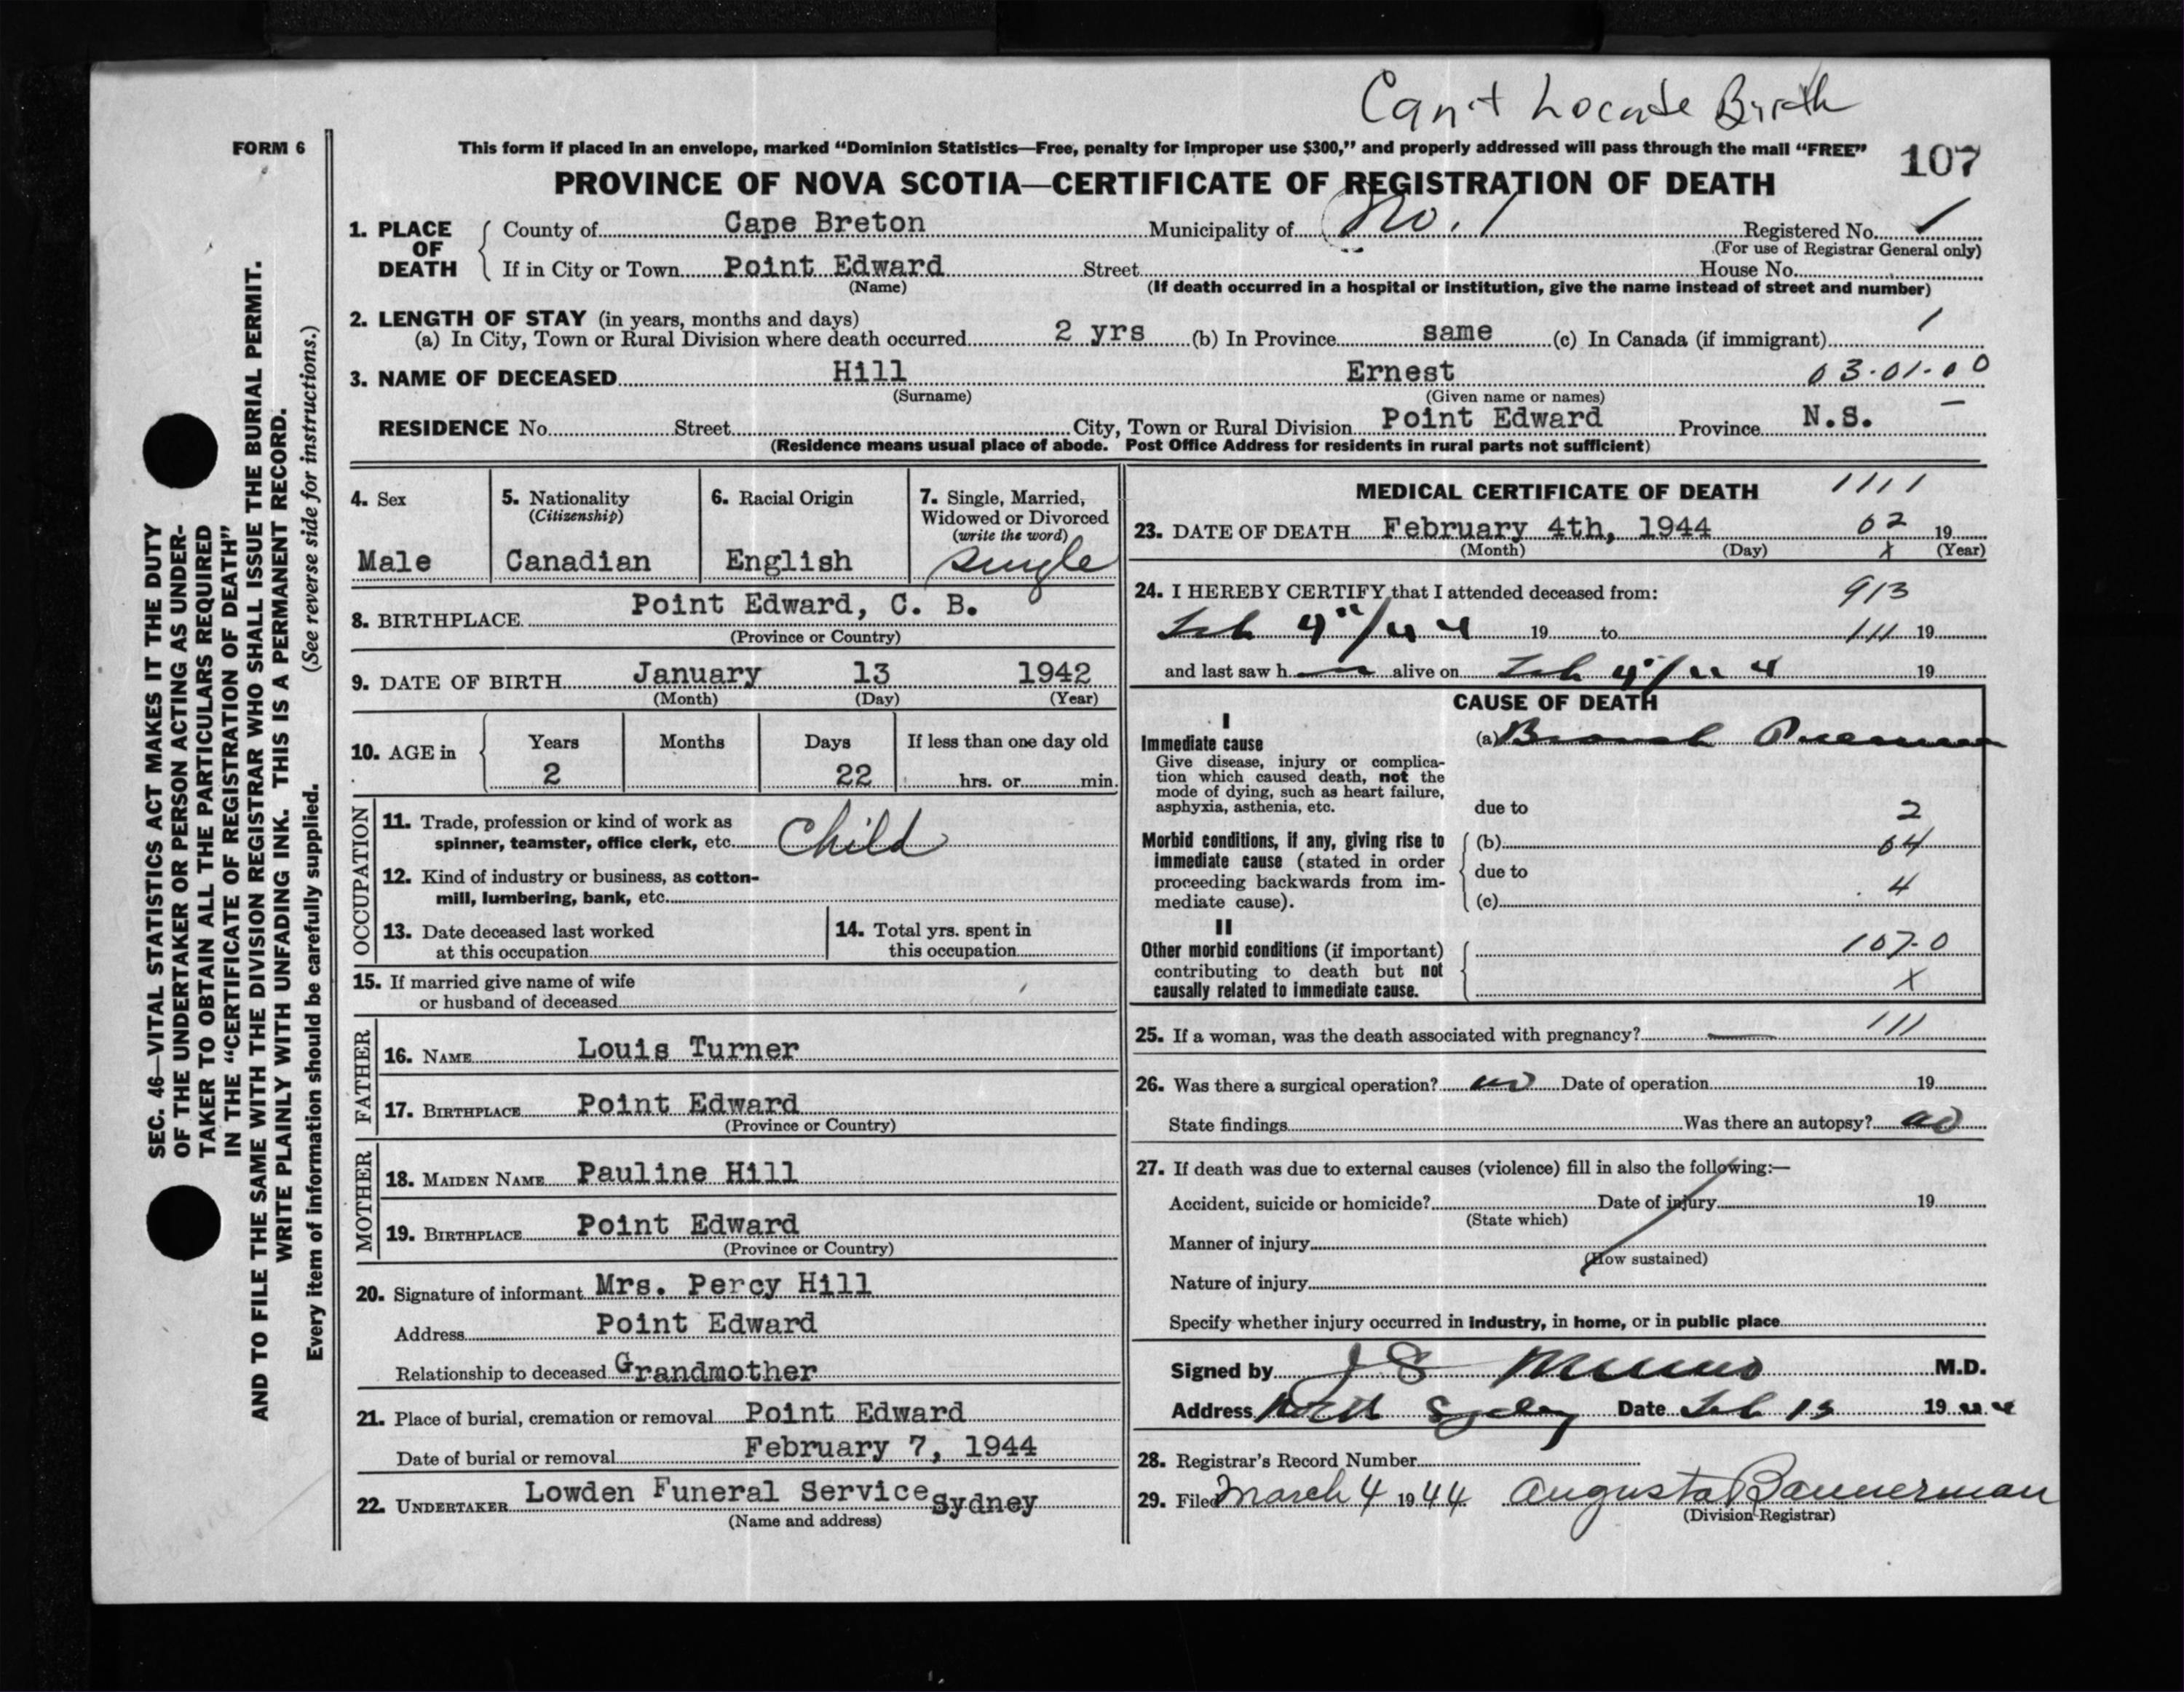 Can't Locate Birth
FORM 6
This form if placed in an envelope, marked “Dominion Statistics—Free, penalty for improper use $300,” and properly addressed will pass through the mail “FREE”
107
PROVINCE OF NOVA SCOTIA—CERTIFICATE OF REGISTRATION OF DEATH
1. PLACE OF DEATH
County of Cape Breton Municipality of No. 1 Registered No. 1
(For use of Registrar General only)
If in City or Town Point Edward Street House No.
(Name) (If death occurred in a hospital or institution, give the name instead of street and number)
2. LENGTH OF STAY (in years, months and days)
(a) In City, Town or Rural Division where death occurred 2 yrs (b) In Province same (c) In Canada (if immigrant) 1
3. NAME OF DECEASED Hill Ernest 03-01-00
(Surname) (Given name or names)
RESIDENCE No. Street City, Town or Rural Division Point Edward Province N.S.
(Residence means usual place of abode. Post Office Address for residents in rural parts not sufficient)
4. Sex
Male
5. Nationality
(Citizenship)
Canadian
6. Racial Origin
English
7. Single, Married,
Widowed or Divorced
(write the word)
single
8. BIRTHPLACE Point Edward, C. B.
(Province or Country)
9. DATE OF BIRTH January 13 1942
(Month) (Day) (Year)
10. AGE in
Years Months Days If less than one day old
2 22 hrs. or min.
OCCUPATION
11. Trade, profession or kind of work as
spinner, teamster, office clerk, etc. Child
12. Kind of industry or business, as cotton-
mill, lumbering, bank, etc.
13. Date deceased last worked
at this occupation
14. Total yrs. spent in
this occupation
15. If married give name of wife
or husband of deceased
FATHER
16. NAME Louis Turner
17. BIRTHPLACE Point Edward
(Province or Country)
MOTHER
18. MAIDEN NAME Pauline Hill
19. BIRTHPLACE Point Edward
(Province or Country)
20. Signature of informant Mrs. Percy Hill
Address Point Edward
Relationship to deceased Grandmother
21. Place of burial, cremation or removal Point Edward
Date of burial or removal February 7, 1944
22. UNDERTAKER Lowden Funeral Service Sydney
(Name and address)
MEDICAL CERTIFICATE OF DEATH 1111
23. DATE OF DEATH February 4th, 1944 02 19
(Month) (Day) X (Year)
24. I HEREBY CERTIFY that I attended deceased from: 913
Feb 4"/44 19 to 111 19
and last saw h alive on Feb 4"/44 19
CAUSE OF DEATH
I
Immediate cause
Give disease, injury or complica-
tion which caused death, not the
mode of dying, such as heart failure,
asphyxia, asthenia, etc.
(a) Bronch Pneumonia
due to 2
Morbid conditions, if any, giving rise to
immediate cause (stated in order
proceeding backwards from im-
mediate cause).
(b) 64
due to
(c) 4
II
Other morbid conditions (if important)
contributing to death but not
causally related to immediate cause.
107-0
X
25. If a woman, was the death associated with pregnancy? 111
26. Was there a surgical operation? no Date of operation 19
State findings Was there an autopsy? no
27. If death was due to external causes (violence) fill in also the following:—
Accident, suicide or homicide? Date of injury 19
(State which)
Manner of injury
(How sustained)
Nature of injury
Specify whether injury occurred in industry, in home, or in public place
Signed by J S Munro M.D.
Address North Sydney Date Feb 15 1944
28. Registrar's Record Number
29. Filed March 4 1944 Augusta Bannerman
(Division Registrar)
SEC. 46—VITAL STATISTICS ACT MAKES IT THE DUTY
OF THE UNDERTAKER OR PERSON ACTING AS UNDER-
TAKER TO OBTAIN ALL THE PARTICULARS REQUIRED
IN THE “CERTIFICATE OF REGISTRATION OF DEATH”
AND TO FILE THE SAME WITH THE DIVISION REGISTRAR WHO SHALL ISSUE THE BURIAL PERMIT.
WRITE PLAINLY WITH UNFADING INK. THIS IS A PERMANENT RECORD.
Every item of information should be carefully supplied. (See reverse side for instructions.)